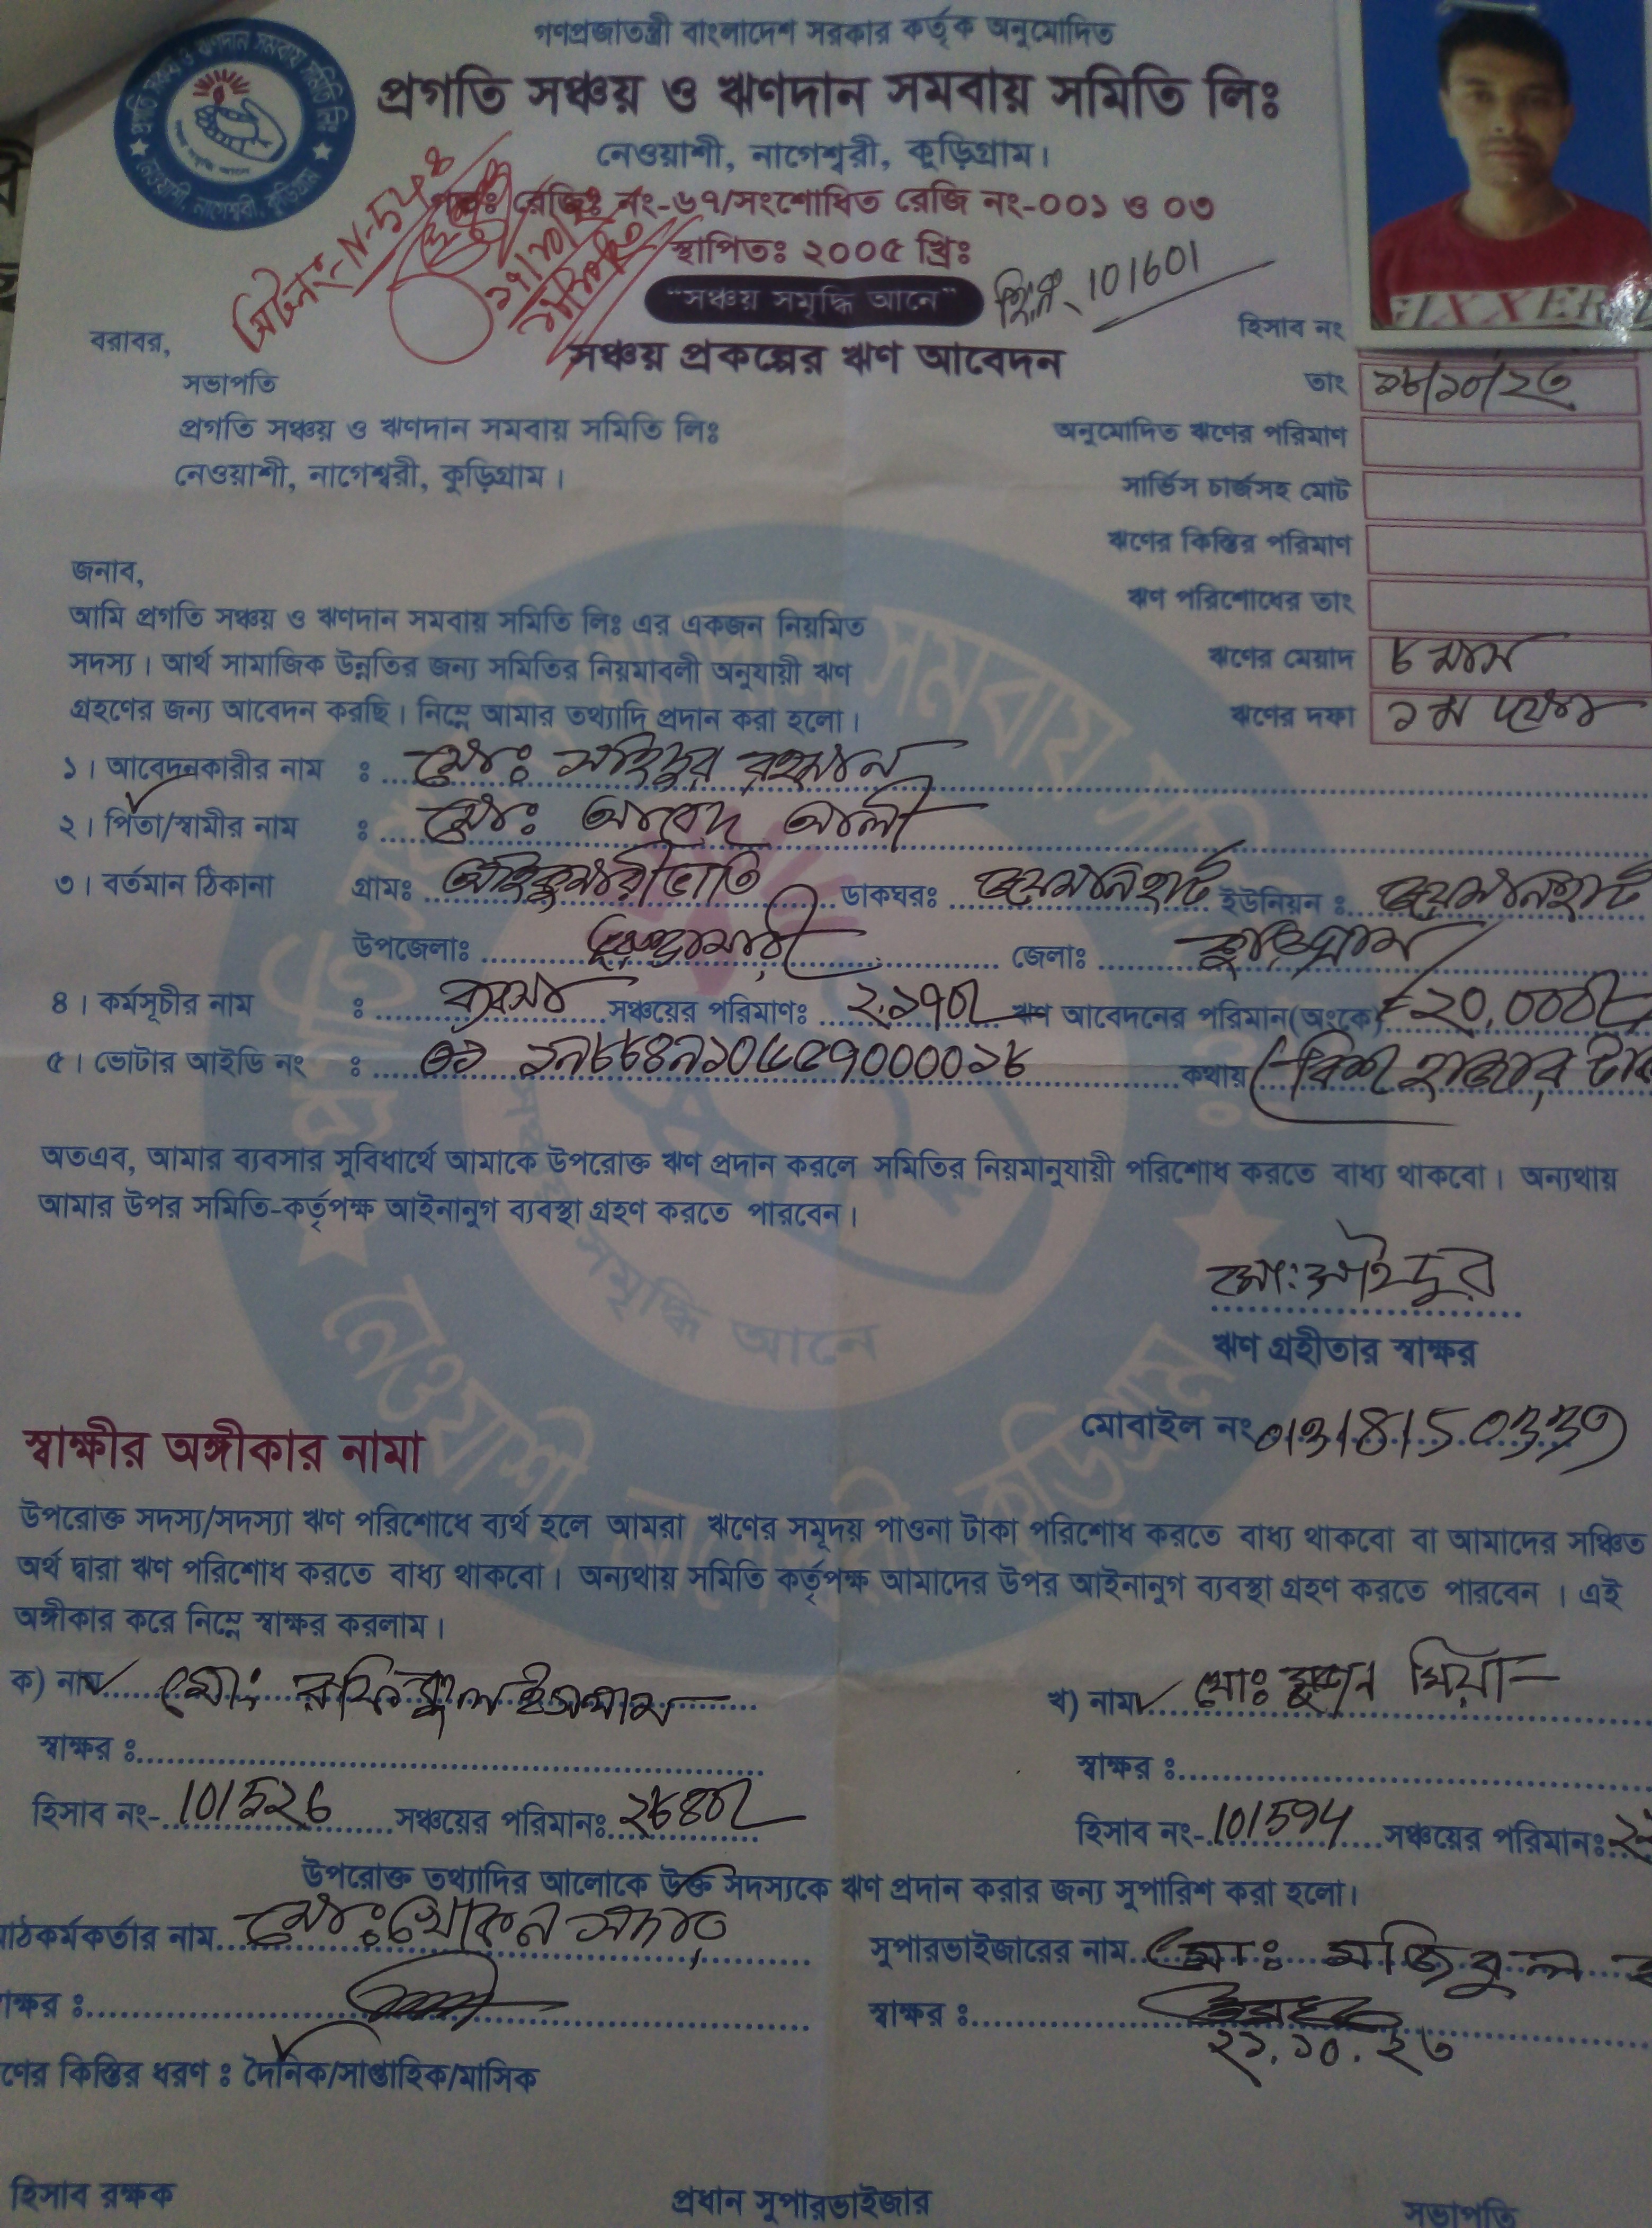 গণপ্রজাতন্ত্রী বাংলাদেশ সরকার কর্তৃক অনুমোদিত
প্রগতি সঞ্চয় ও ঋণদান সমবায় সমিতি লিঃ
নেওয়াশী, নাগেশ্বরী, কুড়িগ্রাম।
রেজিঃ নং-৬৭/সংশোধিত রেজি নং-০০১ ও ০৩
স্থাপিতঃ ২০০৫ খ্রিঃ
"সঞ্চয় সমৃদ্ধি আনে"
101601
হিসাব নং
সঞ্চয় প্রকল্পের ঋণ আবেদন
বরাবর,
সভাপতি
প্রগতি সঞ্চয় ও ঋণদান সমবায় সমিতি লিঃ
নেওয়াশী, নাগেশ্বরী, কুড়িগ্রাম।
তাং ১৮/১০/২৩
অনুমোদিত ঋণের পরিমাণ
সার্ভিস চার্জসহ মোট
ঋণের কিস্তির পরিমাণ
ঋণ পরিশোধের তাং
ঋণের মেয়াদ ৮ মাস
ঋণের দফা ১ম দফা
জনাব,
আমি প্রগতি সঞ্চয় ও ঋণদান সমবায় সমিতি লিঃ এর একজন নিয়মিত
সদস্য। আর্থ সামাজিক উন্নতির জন্য সমিতির নিয়মাবলী অনুযায়ী ঋণ
গ্রহণের জন্য আবেদন করছি। নিম্নে আমার তথ্যাদি প্রদান করা হলো।
১। আবেদনকারীর নাম : মোঃ সাইদুর রহমান
২। পিতা/স্বামীর নাম : মোঃ আবেদ আলী
৩। বর্তমান ঠিকানা গ্রামঃ আইকুমারীভাতি ডাকঘরঃ জয়মনিরহাট ইউনিয়ন : জয়মনিরহাট
উপজেলাঃ ভূরুঙ্গামারী জেলাঃ কুড়িগ্রাম
৪। কর্মসূচীর নাম : ব্যবসা সঞ্চয়ের পরিমাণঃ ২,১৭০/- ঋণ আবেদনের পরিমান(অংকে) ২০,০০০/-
৫। ভোটার আইডি নং : কথায় বিশ হাজার
অতএব, আমার ব্যবসার সুবিধার্থে আমাকে উপরোক্ত ঋণ প্রদান করলে সমিতির নিয়মানুযায়ী পরিশোধ করতে বাধ্য থাকবো। অন্যথায়
আমার উপর সমিতি-কর্তৃপক্ষ আইনানুগ ব্যবস্থা গ্রহণ করতে পারবেন।
মোঃ সাইদুর
ঋণ গ্রহীতার স্বাক্ষর
মোবাইল নং
স্বাক্ষীর অঙ্গীকার নামা
উপরোক্ত সদস্য/সদস্যা ঋণ পরিশোধে ব্যর্থ হলে আমরা ঋণের সমূদয় পাওনা টাকা পরিশোধ করতে বাধ্য থাকবো বা আমাদের সঞ্চিত
অর্থ দ্বারা ঋণ পরিশোধ করতে বাধ্য থাকবো। অন্যথায় সমিতি কর্তৃপক্ষ আমাদের উপর আইনানুগ ব্যবস্থা গ্রহণ করতে পারবেন । এই
অঙ্গীকার করে নিম্নে স্বাক্ষর করলাম।
ক) নাম মোঃ রফিকুল ইসলাম খ) নাম মোঃ মিয়া
স্বাক্ষর : স্বাক্ষর :
হিসাব নং- 101526 সঞ্চয়ের পরিমানঃ ২৮৪০/- হিসাব নং- 101594 সঞ্চয়ের পরিমানঃ
উপরোক্ত তথ্যাদির আলোকে উক্ত সদস্যকে ঋণ প্রদান করার জন্য সুপারিশ করা হলো।
মাঠকর্মকর্তার নাম মোঃ খোকন সুপারভাইজারের নাম মোঃ মজিবুল
স্বাক্ষর : স্বাক্ষর :
২১.১০.২৩
ণের কিস্তির ধরণ : দৈনিক/সাপ্তাহিক/মাসিক
হিসাব রক্ষক প্রধান সুপারভাইজার সভাপতি